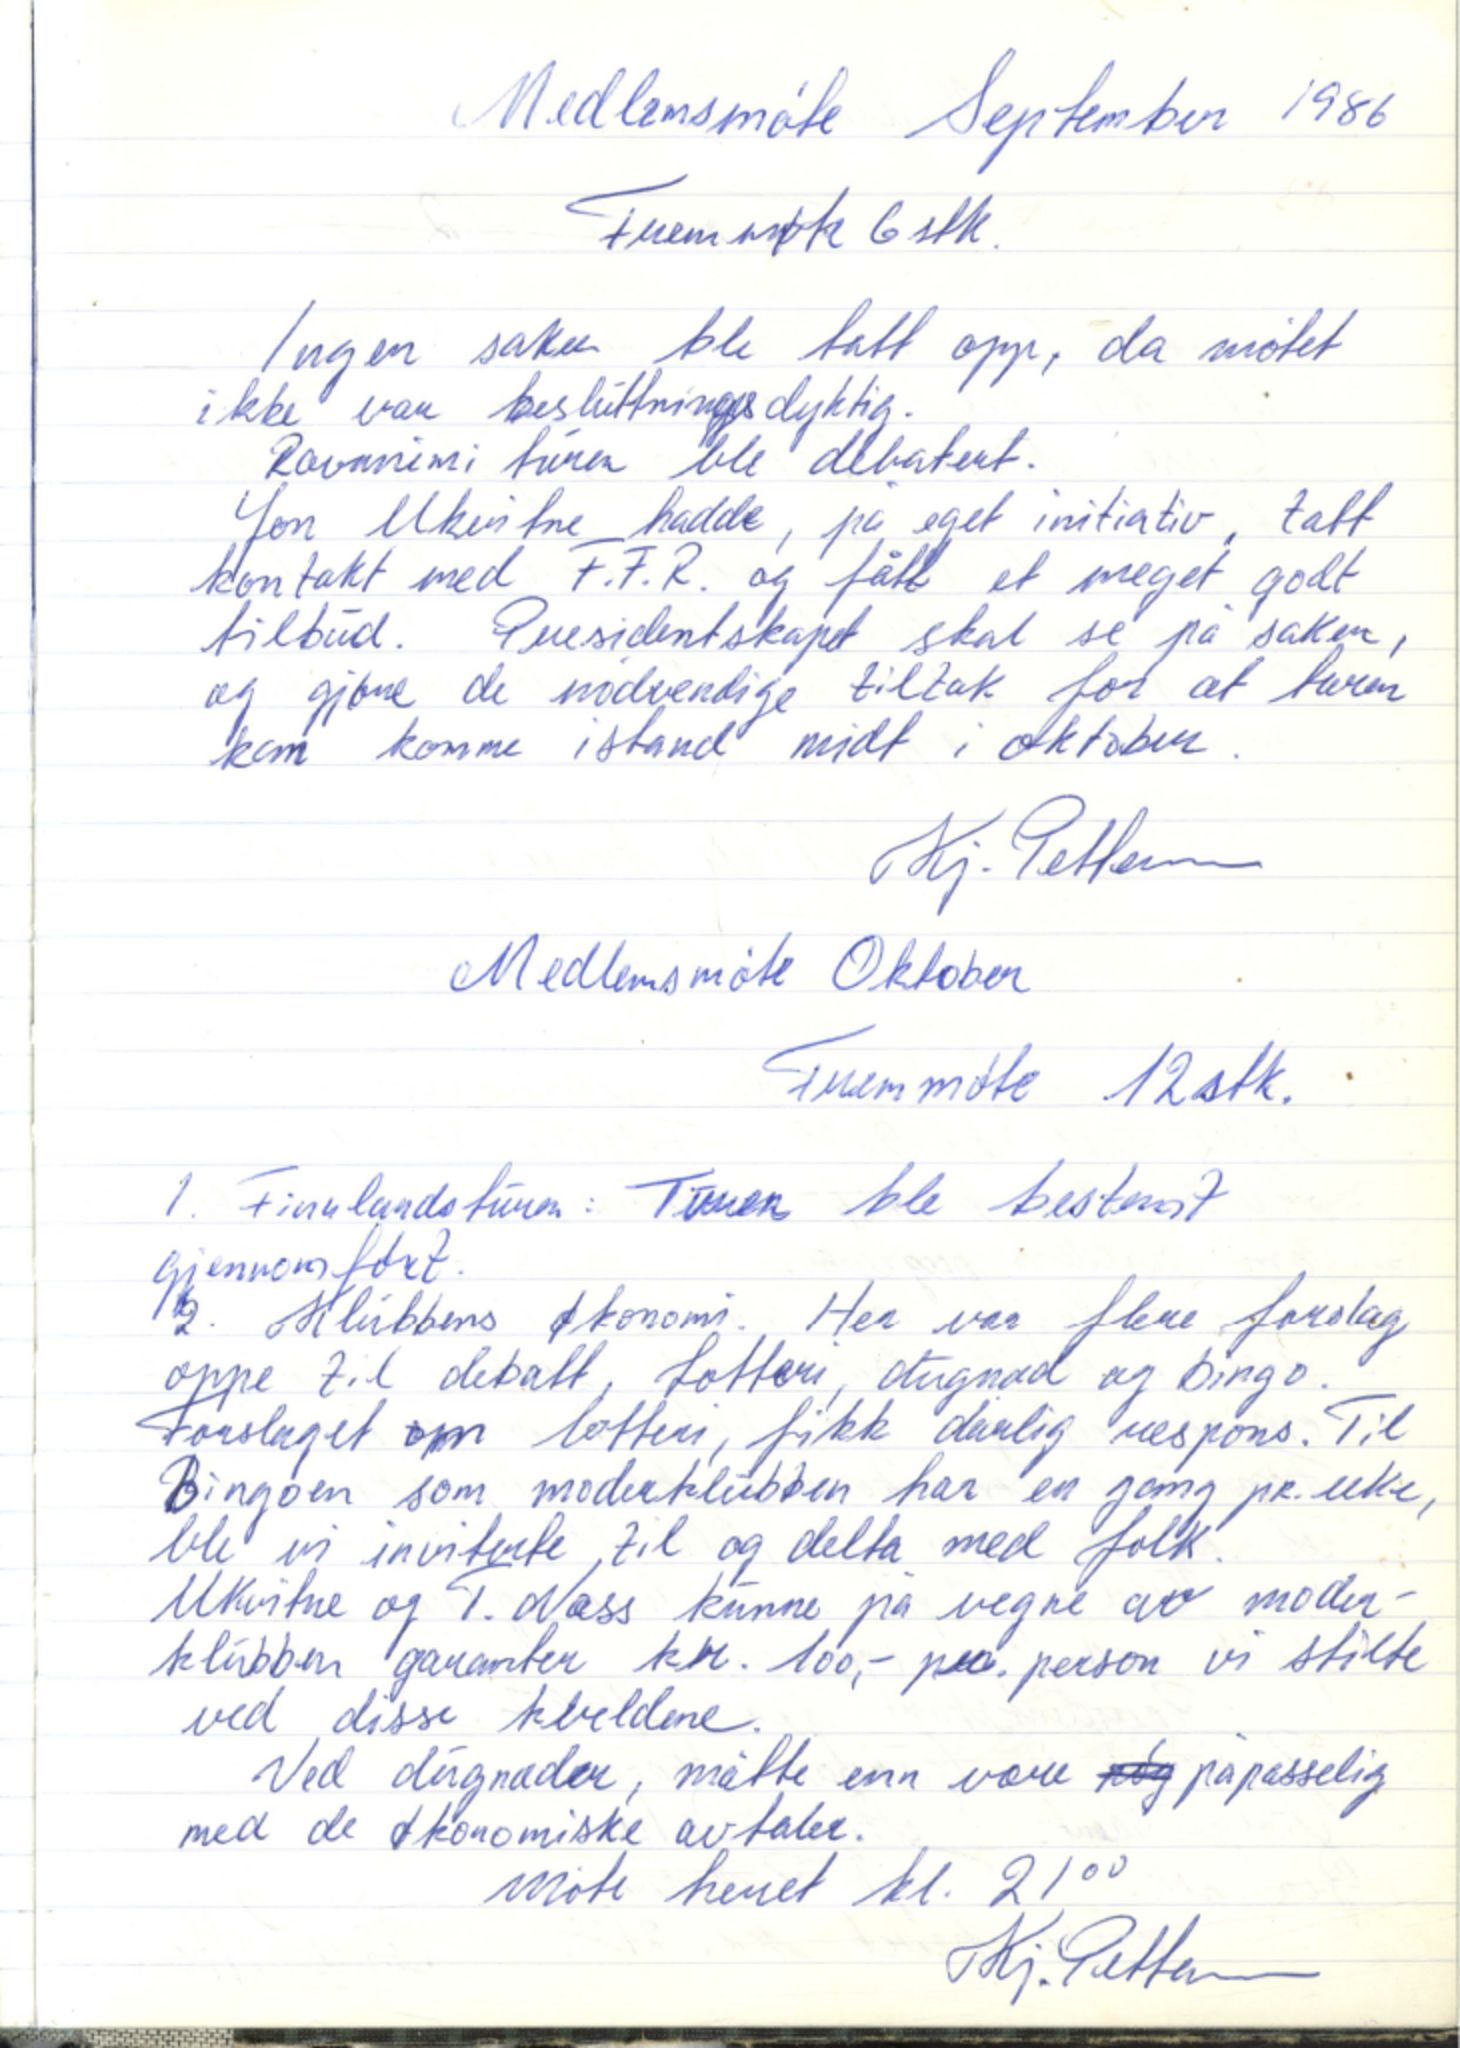 Medlemsmöte September 1986
Fremmøte 6 stk.
Ingen saker ble tatt opp, da mötet
ikke var beslutningsdyktig.
Rovaniemi turen ble debatert.
Jon Ukvitne hadde, på eget initiativ, tatt
kontakt med F.F.R. og fått et meget godt
tilbud. Presidentskapet skal se på saken,
og gjöre de nödvendige tiltak for at turen
kan komme istand midt i oktober.
Kj. Petter
Medlemsmöte Oktober
Fremmöte 12 stk.
1. Finnlandsturen: Turen ble bestemt
gjennomfört.
2. Klubbens økonomi. Her var flere forslag
oppe til debatt, Lotteri, dugnad og bingo.
Forslaget om lotteri, fikk dårlig respons. Til
Bingoen som moderklubben har en gang pr. uke,
ble vi inviterte til og delta med folk.
Ukvitne og T. Næss kunne på vegne av moder-
klubben garanter kr. 100,- pr. person vi stilte
ved disse kveldene.
Ved dugnader, måtte enn være påpasselig
med de økonomiske avtaler.
Möte hevet kl. 21⁰⁰
Kj. Petter